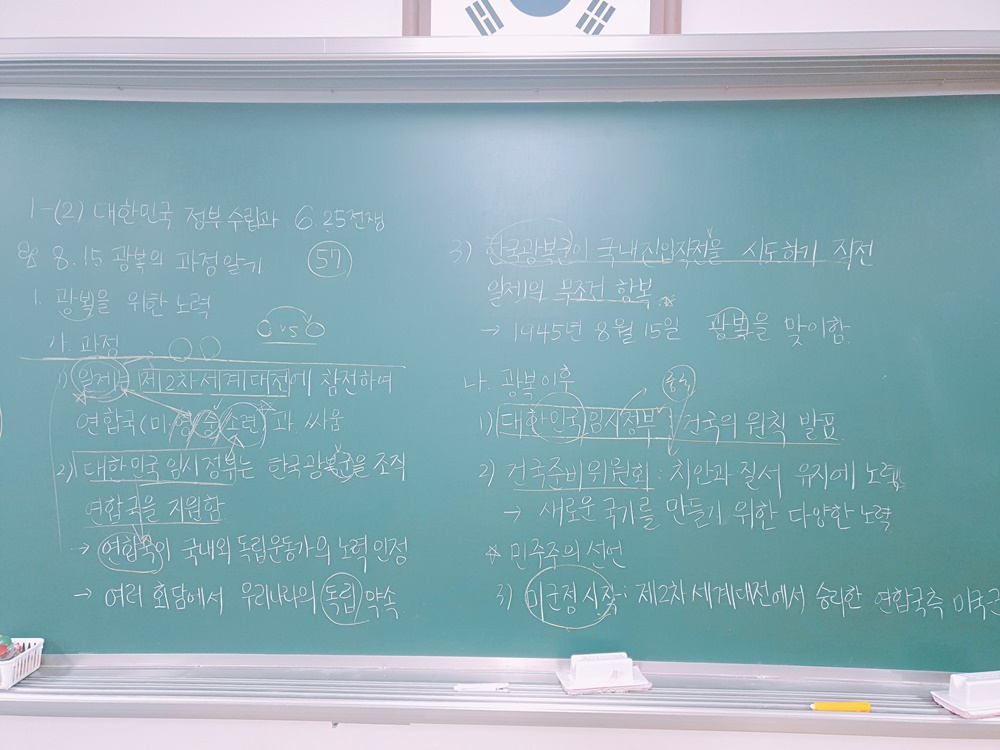 1-(2) 대한민국 정부수립과 6.25전쟁
8.15 광복의 과정알기 57
1. 광복을 위한 노력
0 vs 0
가. 과정
1) 일제는 제2차 세계대전에 참전하여
연합국(미.영.중.소련)과 싸움
2) 대한민국 임시정부는 한국광복군을 조직
연합국을 지원함
→ 연합국이 국내외 독립운동가의 노력 인정
→ 여러 회담에서 우리나라의 독립 약속
3) 한국광복군이 국내진입작전을 시도하기 직전
일제의 무조건 항복
→ 1945년 8월 15일 광복을 맞이함.
나. 광복이후
1) 대한민국 임시정부 : 건국의 원칙 발표
2) 건국준비위원회 : 치안과 질서 유지에 노력
→ 새로운 국가를 만들기 위한 다양한 노력
☆ 민주주의 선언
3) 미군정 시작 : 제2차 세계대전에서 승리한 연합국측 미국